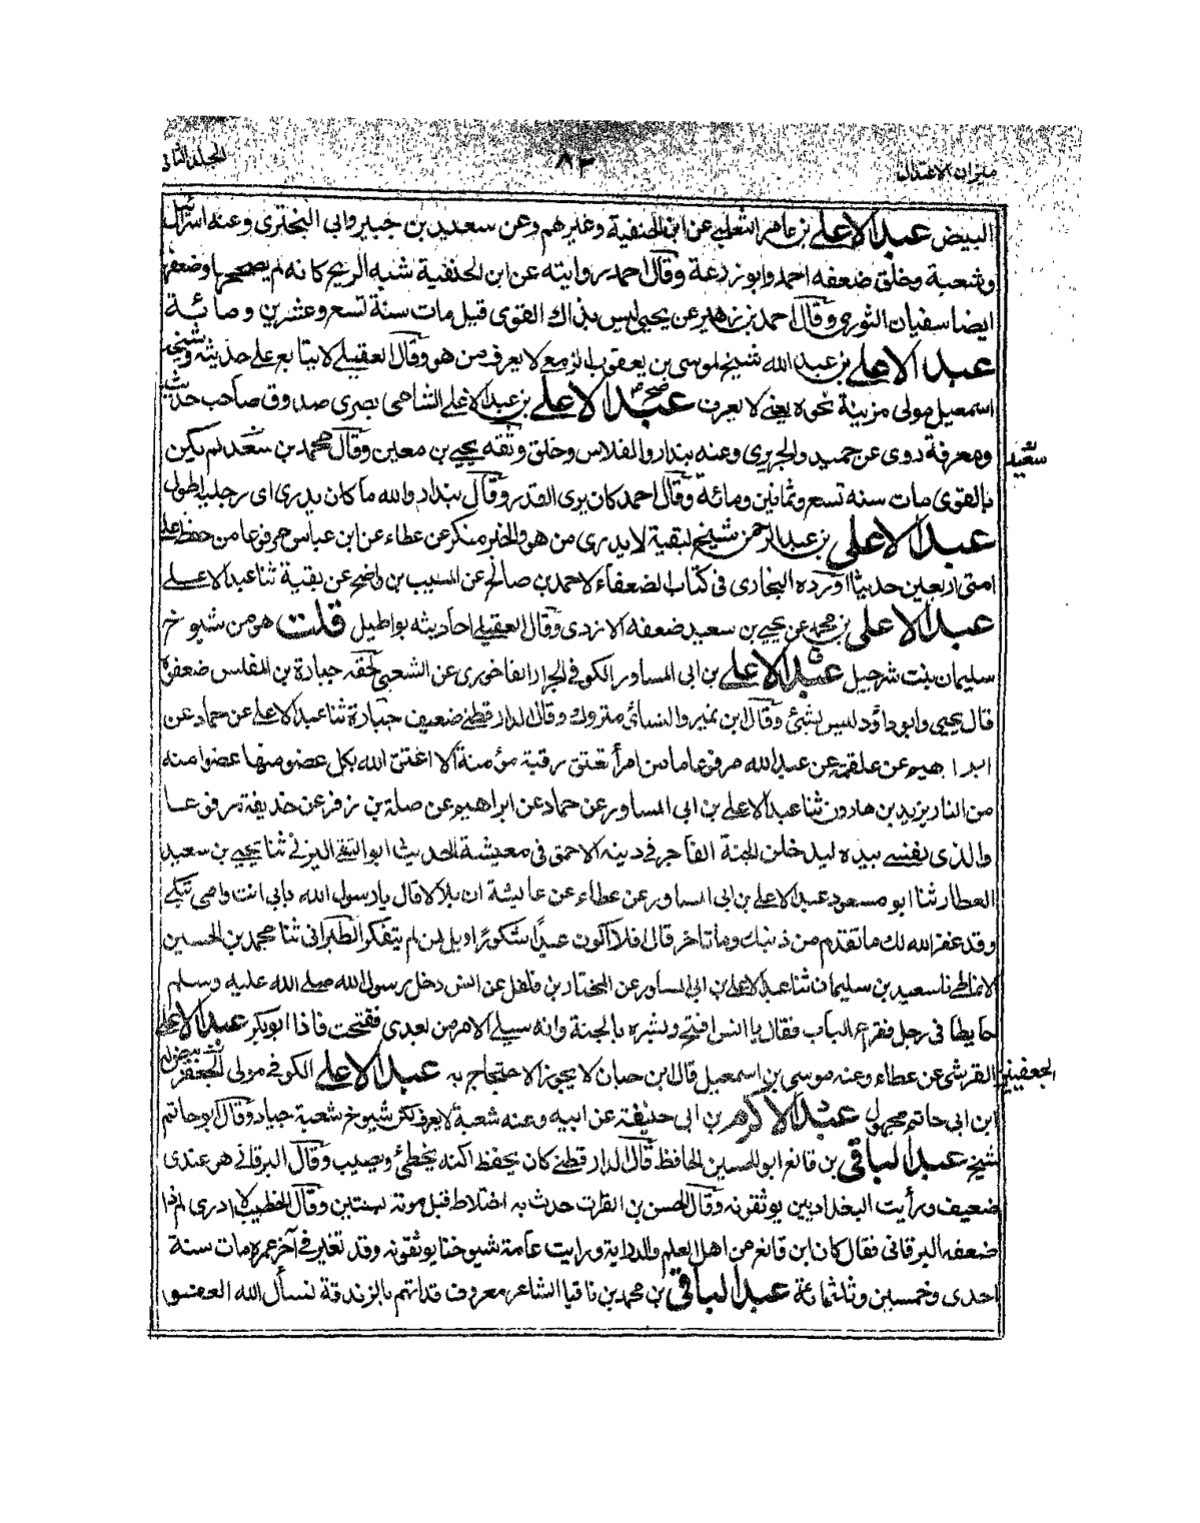 ميزان الاعتدال ٨٢ المجلد الثاني
البيض عبد الاعلى بن عامر الثعلبي عن ابن الحنفية وغيرهم وعن سعيد بن جبير وابي البختري وعنه اسرائيل
وشعبة وخلق ضعفه احمد وابو زرعة وقال احمد روايته عن ابن الحنفية شبه الريح كانه لم يصححها وضعفها
ايضا سفيان الثوري وقال احمد بن زهير عن يحيى ليس بذاك القوى قيل مات سنة تسع وعشرين ومائة
عبد الاعلى بن عبد الله شيخ لموسى بن يعقوب الزمعي لا يعرف من هو وقال العقيلي لا يتابع على حديثه وشيخه
اسمعيل مولى مزينة نحوه يعني لا يعرف عبد الاعلى صح بن عبد الاعلى الشامي بصرى صدوق صاحب حديث
ومعرفة روى عن حميد والجريري وعنه بندار والفلاس وخلق وثقه يحيى بن معين وقال محمد بن سعد لم يكن
سعيد
بالقوى مات سنه تسع وثمانين ومائة وقال احمد كان يرى القدر وقال بندار والله ما كان يدرى اى رجليه اطول
عبد الاعلى بن عبد الرحمن شيخ لبقية لا يدرى من هو والخبر منكر عن عطاء عن ابن عباس مرفوعا من حفظ على
امتى اربعين حديثا اورده البخارى فى كتاب الضعفاء لاحمد بن صالح عن المسيب بن واضح عن بقية ثنا عبد الاعلى
عبد الاعلى بن محمد عن يحيى بن سعيد ضعفه الازدى وقال العقيلي احاديثه بواطيل قلت هو من شيوخ
سليمان بنت شرحبيل عبد الاعلى بن ابى المساور الكوفى الجرار الفاخورى عن الشعبى لحقه جبارة بن المغلس ضعفوه
قال يحيى وابو داؤد ليس بشئ وقال ابن نمير والنسائى متروك وقال الدارقطنى ضعيف جبارة ثنا عبد الاعلى عن حماد عن
ابراهيم عن علقمة عن عبد الله مرفوعا ما من امرأ تعتق رقبة مؤمنة الا اعتق الله بكل عضو منها عضوا منه
من النار يزيد بن هارون ثنا عبد الاعلى بن ابى المساور عن حماد عن ابراهيم عن صلة بن زفر عن حذيفة مرفوعا
والذى نفسى بيده ليدخلن الجنة الفاجر فى دينه الاحمق فى معيشة الحديث ابو التقى اليزنى ثنا يحيى بن سعيد
العطار ثنا ابو مسعود عبد الاعلى بن ابى المساور عن عطاء عن عايشة ان بلالا قال يا رسول الله بابى انت وامى تبكى
وقد غفر الله لك ما تقدم من ذنبك وما تاخر قال افلا اكون عبدا شكورا ويل لمن لم يتفكر الطبرانى ثنا محمد بن الحسين
الانماطى نا سعيد بن سليمان ثنا عبد الاعلى بن ابى المساور عن المختار بن فلفل عن انس دخل رسول الله صلى الله عليه وسلم
حايطا فى رجل فقرع الباب فقال يا انس افتح وبشره بالجنة وانه سيلى الامر من بعدى ففتحت فاذا ابو بكر عبد الاعلى
القرشى عن عطاء وعنه موسى بن اسمعيل قال ابن حبان لا يجوز الاحتجاج به عبد الاعلى الكوفى مولى الجعفر بيض له
الجعفيين
ابن ابى حاتم مجهول عبد الاكرم بن ابى حنيفة عن ابيه وعنه شعبة لا يعرف لكن شيوخ شعبة جياد وقال ابو حاتم
شيخ عبد الباقى بن قانع ابو الحسين الحافظ قال الدارقطنى كان يحفظ لكنه يخطئ ويصيب وقال البرقانى هو عندى
ضعيف ورأيت البغداديين يوثقونه وقال الحسن بن الفرات حدث به اختلاط قبل موته بسنتين وقال الخطيب لا ادرى لم ذا
ضعفه البرقانى فقال كان ابن قانع من اهل العلم والدراية ورايت عامة شيوخنا يوثقونه وقد تغير فى آخر عمره مات سنة
احدى وخمسين وثلثمائة عبد الباقى بن محمد بن ناقيا الشاعر معروف قد اتهم بالزندقة نسأل الله العفو